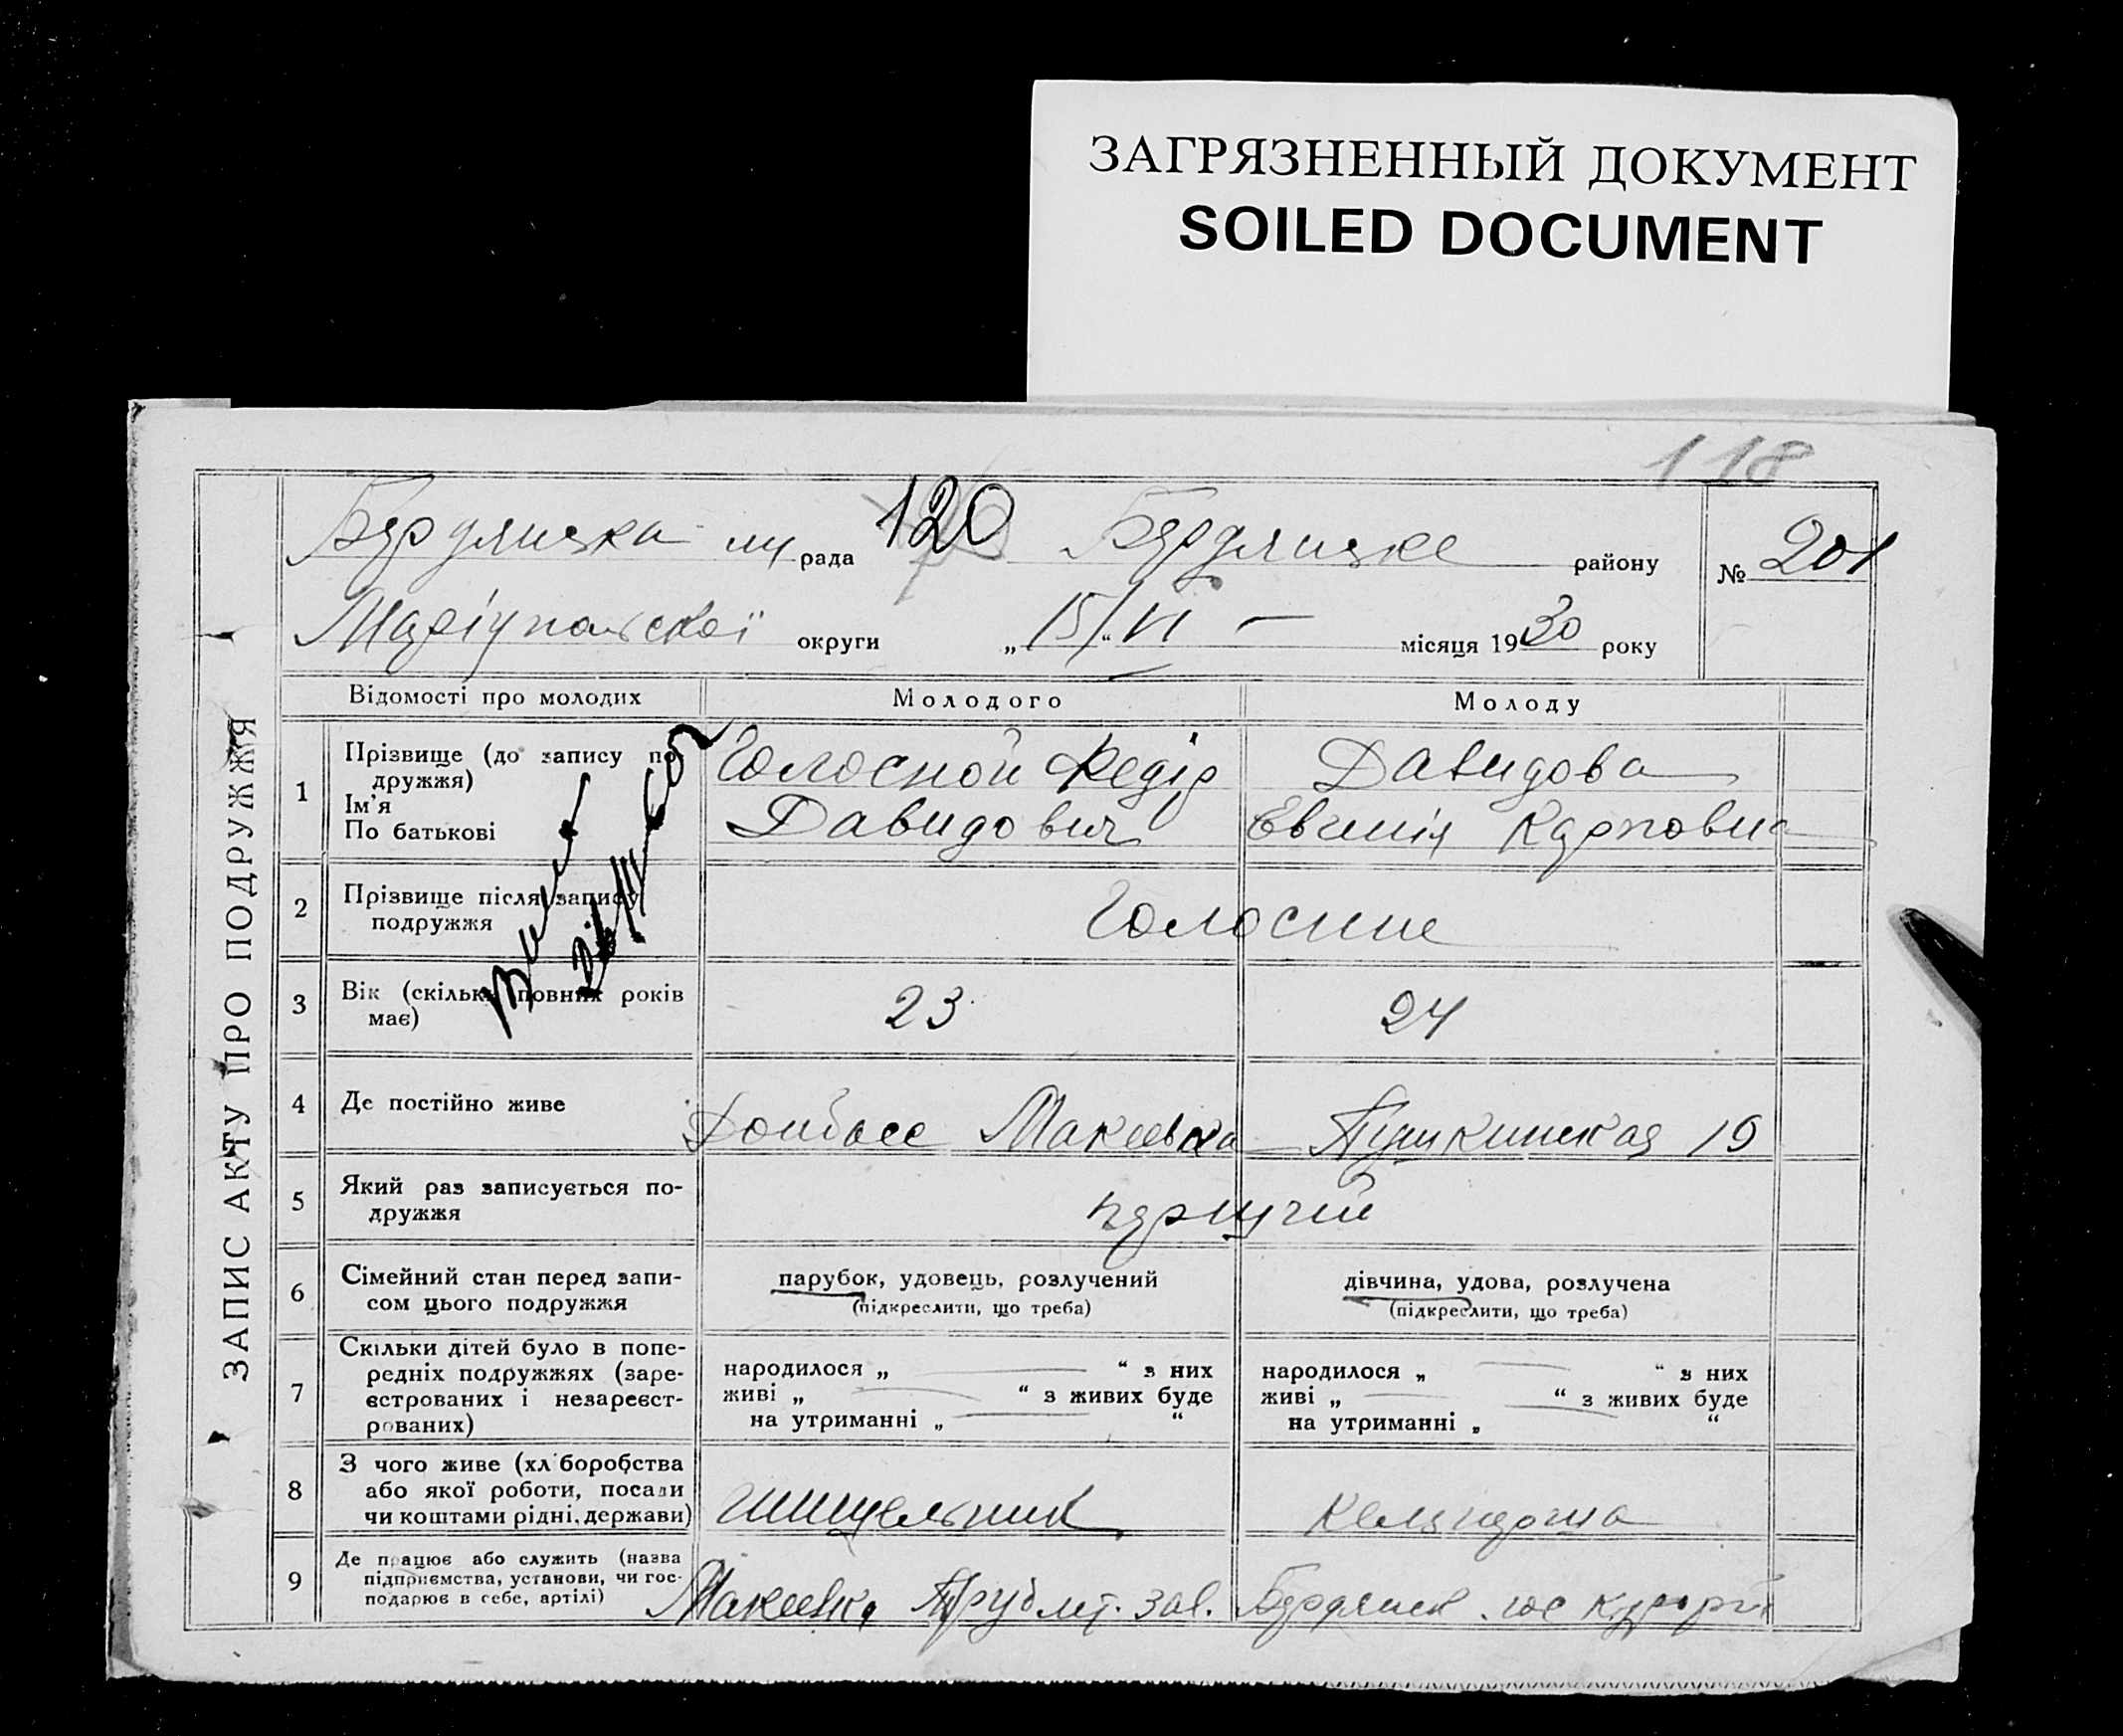 ЗАГРЯЗНЕННЫЙ ДОКУМЕНТ
SOILED DOCUMENT
118
Бердянська рада 120 Бердянське району № 201
Маріупольської округи „15/"VI — місяця 1930 року
ЗАПИС АКТУ ПРО ПОДРУЖЖЯ
Відомості про молодих Молодого Молоду
1 Прізвище (до запису подружжя) Голосной Федір Давидова
Ім'я
По батькові Давидович Евгенія Карповна
2 Прізвище після запису
подружжя Голосние
3 Вік (скільки повних років
має) 23 24
4 Де постійно живе Донбасс Макеевка Пушкинская 19
5 Який раз записується по-
дружжя перший
6 Сімейний стан перед запи-
сом цього подружжя
парубок, удовець, розлучений дівчина, удова, розлучена
(підкреслити, що треба) (підкреслити, що треба)
7 Скільки дітей було в попе-
редніх подружжях (заре-
єстрованих і незареєст-
рованих)
народилося „ — “ з них народилося „ — “ з них
живі „ — “ з живих буде живі „ — “ з живих буде
на утриманні „ — “ на утриманні „ “
8 З чого живе (хліборобства
або якої роботи, посади
чи коштами рідні, держави)
9 Де працює або служить (назва
підприємства, установи, чи гос-
подарює в себе, артілі)
Макеевка Труб. мет. зав. Бердянск гос курорт